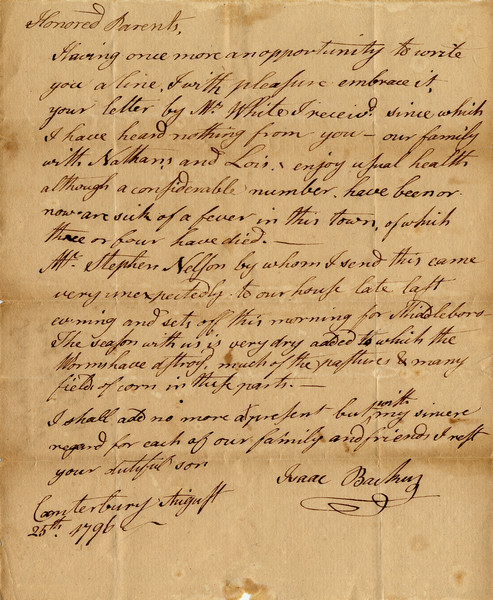 Honored Parents,
Having once more an opportunity to write
you a line, I with pleasure embrace it,
your letter by Mr. White I receivd. since which
I have heard nothing from you – our family
with Nathans, and Lois.s enjoy usual health
although a considerable number, have been or
now are sick of a fever in this town, of which
three or four have died. —
Mr. Stephen Nelson by whom I send this came
very unexpectedly to our house late last
evening and sets off this morning for Middleboro
The season with us is very dry added to which the
Worms have destroid, much of the pastures & many
fields of corn in these parts. —
I shall add no more at present but with my sincere
regard for each of our family and friends I rest
your dutiful son
Isaac Backus
Canterbury August
25th. 1796